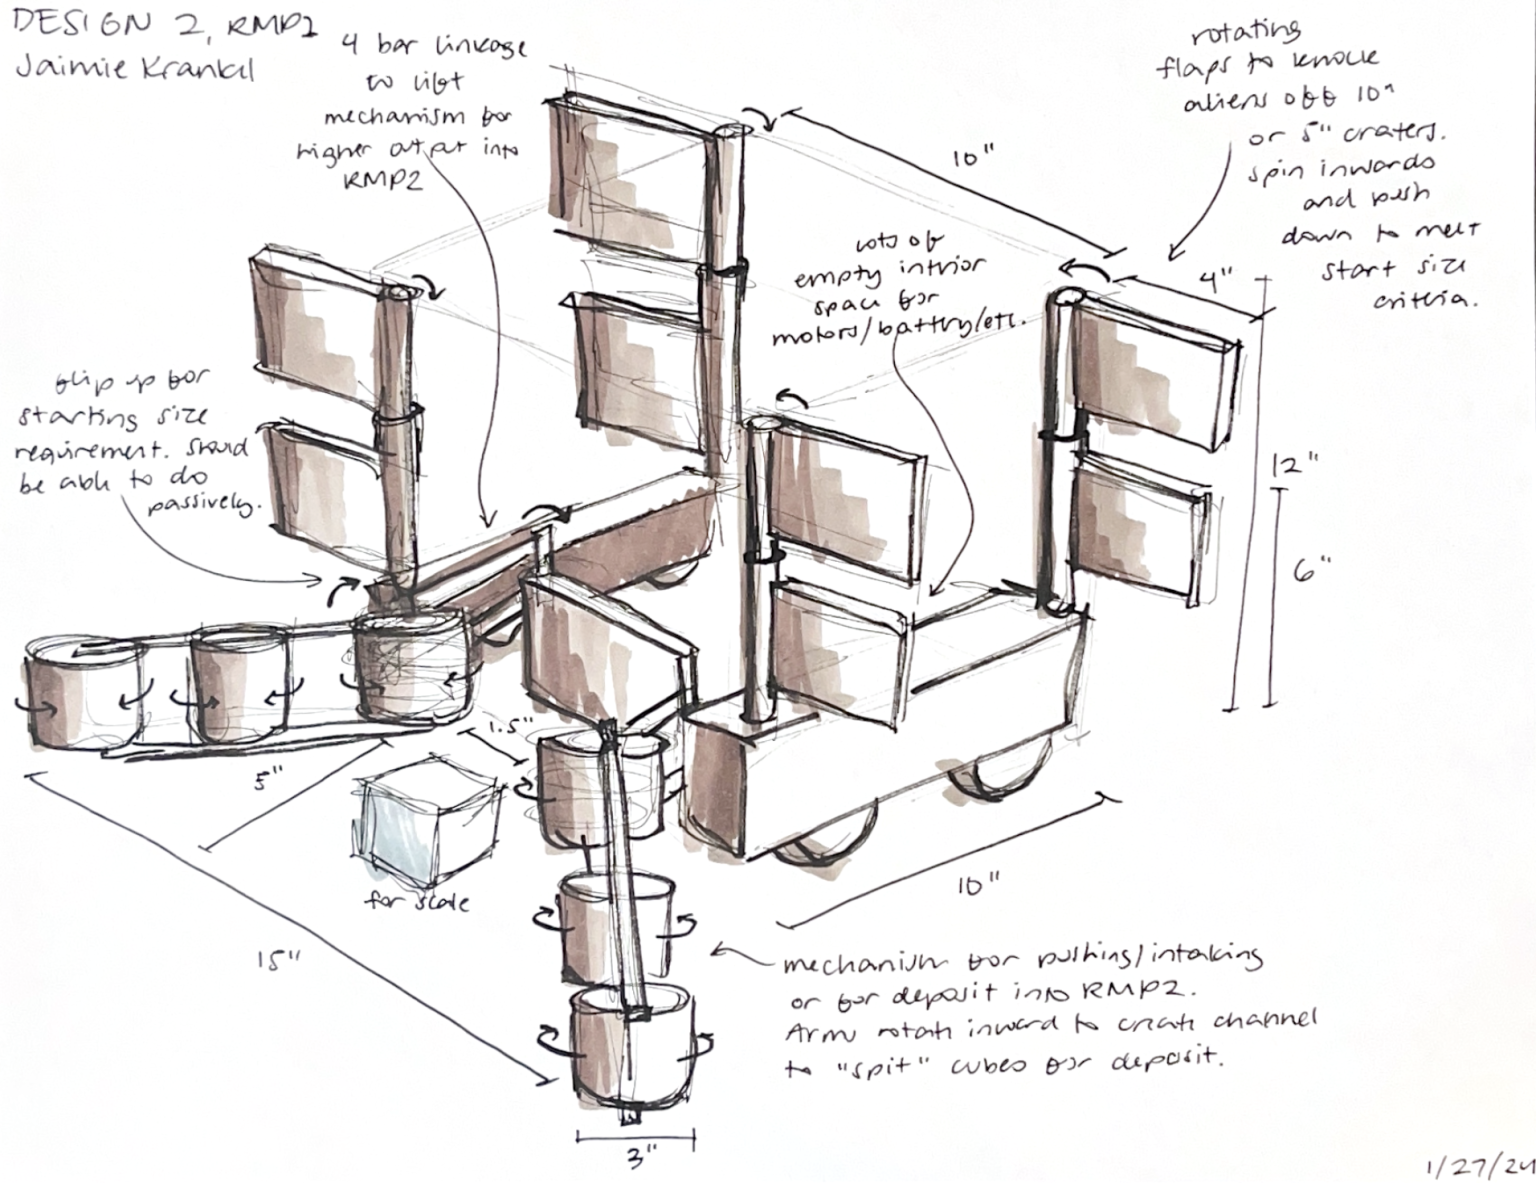 DESIGN 2, RMP2
Jaimie Krankl
4 bar linkage
to lift
mechanism for
higher output into
RMP2
rotating
flaps to knock
aliens off 10"
or 5" craters.
spin inwards
and push
down to meet
start size
criteria.
10"
4"
lots of
empty interior
space for
motors/battery/etc.
flip up for
starting size
requirement. Should
be able to do
passively.
12"
6"
1.5"
5"
for scale
15"
10"
mechanism for pushing/intaking
or for deposit into RMP2.
Arm rotate inward to create channel
to "spit" cubes for deposit.
3"
1/27/24